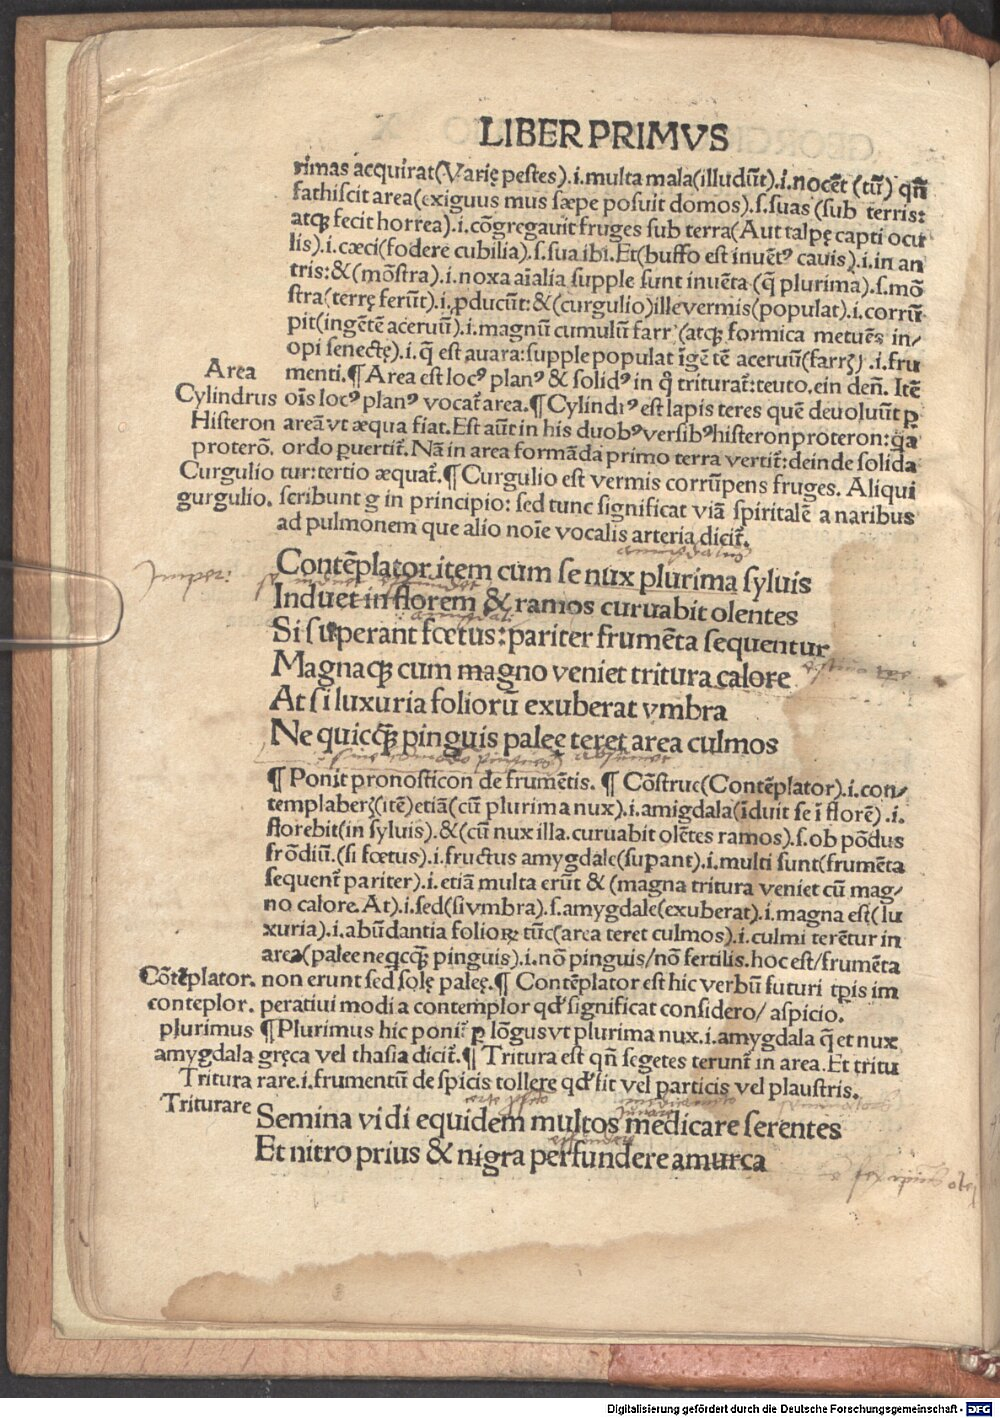 LIBER PRIMVS
rimas acquirat(Varię pestes).i.multa mala(illudūt).i.nocēt (tū) qñ
fathiscit area(exiguus mus sæpe posuit domos).s.suas (sub terris:
atqȝ fecit horrea).i.cōgregauit fruges sub terra(Aut talpę capti ocu
lis).i.cæci(fodere cubilia).s.sua ibi.Et(buffo est inuētꝰ cauis).i.in an
tris:&(mōstra).i.noxa aīalia supple sunt inuēta (q̄ plurima).s.mō
stra(terrę ferūt).i.ꝓducūt:&(curgulio)ille vermis(populat).i.corrū
pit(ingētē aceruū).i.magnū cumulū farr̄ (atqȝ formica metuēs in/
opi senectę).i.q̄ est auara:supple populat īgētē aceruū(farrꝭ).i.fru
Area menti.¶ Area est locꝰ planꝰ & solidꝰ in q̊ triturat̄:teuto.ein deñ. Itē
Cylindrus oīs locꝰ planꝰ vocat̄ area.¶ Cylindrꝰ est lapis teres quē deuoluūt ꝑ
Histeron areā vt æqua fiat. Est aūt in his duobꝰ versibꝰ histeron proteron:q̄a
proterō. ordo ꝑuertit̄. Nā in area formāda primo terra vertit̄:deinde solida
Curgulio tur:tertio æquat̄.¶ Curgulio est vermis corrūpens fruges. Aliqui
gurgulio. scribunt g in principio: sed tunc significat viā spiritalē a naribus
ad pulmonem que alio noīe vocalis arteria dicit̄.
Contēplator item cum se nux plurima syluis
Induet in florem & ramos curuabit olentes
Si superant fœtus: pariter frumēta sequentur
Magnaqȝ cum magno veniet tritura calore
At si luxuria foliorū exuberat vmbra
Ne quicq̄ȝ pinguis palee teret area culmos
¶ Ponit pronosticon de frumētis. ¶ Cōstrue(Contēplator).i.con/
templaberꝭ(itē)etiā(cū plurima nux).i.amigdala(īduit se ī florē).i.
florebit(in syluis).&(cū nux illa.curuabit olētes ramos).s.ob pōdus
frōdiū.(si fœtus).i.fructus amygdale(supant).i.multi sunt(frumēta
sequent̄ pariter).i.etiā multa erūt & (magna tritura veniet cū mag/
no calore.At).i.sed(si vmbra).s.amygdale(exuberat).i.magna est(lu
xuria).i.abūdantia folioꝝ tūc(area teret culmos).i.culmi terētur in
area(palee neqcq̄ȝ pinguis).i.nō pinguis/nō fertilis.hoc est/frumēta
Cōtēplator. non erunt sed solę paleę.¶ Contēplator est hic verbū futuri tꝑis im
conteplor. peratiui modi a contemplor qd' significat considero/ aspicio.
plurimus ¶ Plurimus hic ponit̄ ꝑ lōgus vt plurima nux.i.amygdala q̄ et nux
amygdala gręca vel thasia dicit̄.¶ Tritura est qñ segetes terunt̄ in area. Et tritu
Tritura rare.i.frumentū de spicis tollere qd' fit vel particis vel plaustris.
Triturare
Semina vidi equidem multos medicare serentes
Et nitro prius & nigra perfundere amurca
Digitalisierung gefördert durch die Deutsche Forschungsgemeinschaft - DFG